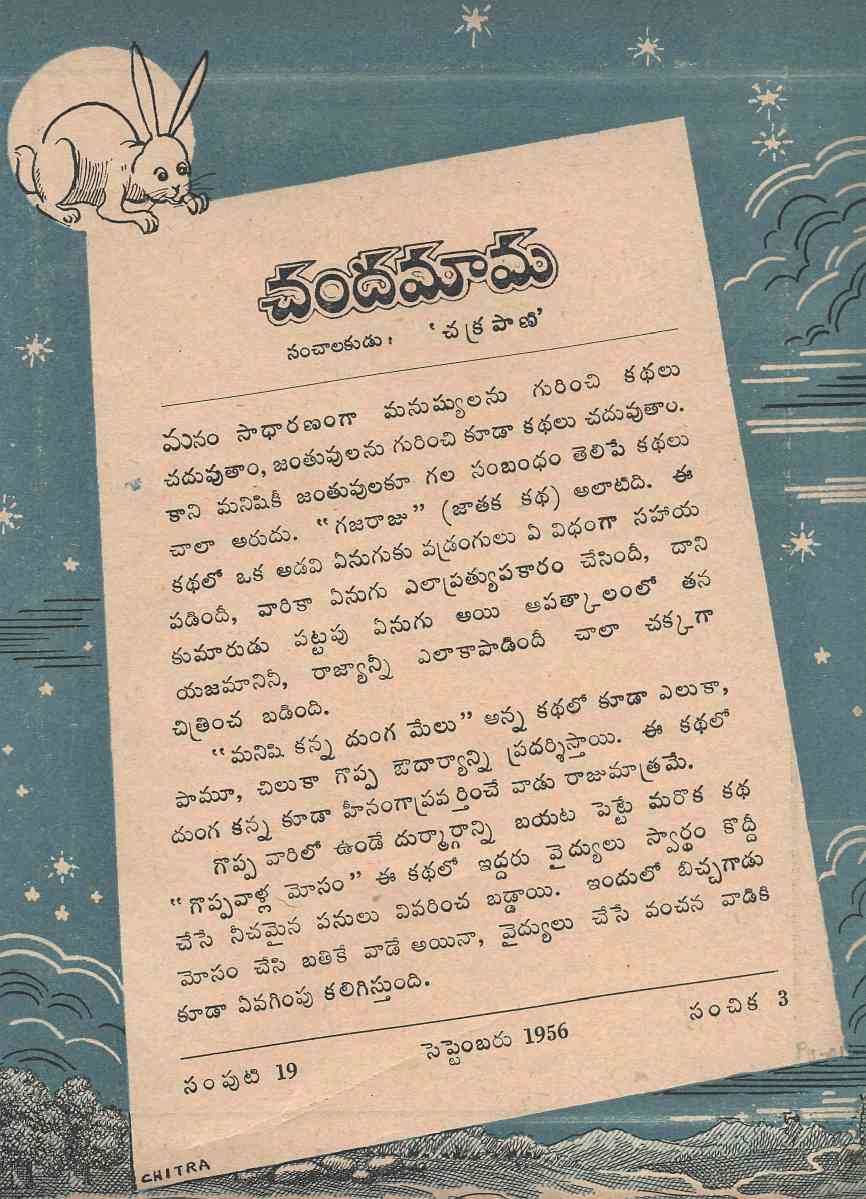 చందమామ
సంచాలకుడు : ' చక్రపాణి '
మనం సాధారణంగా మనుష్యులను గురించి కథలు
చదువుతాం, జంతువులను గురించి కూడా కథలు చదువుతాం.
కాని మనిషికీ జంతువులకూ గల సంబంధం తెలిపే కథలు
చాలా అరుదు. “గజరాజు” (జాతక కథ) అలాటిది. ఈ
కథలో ఒక అడవి ఏనుగుకు వడ్రంగులు ఏ విధంగా సహాయ
పడిందీ, వారికా ఏనుగు ఎలాప్రత్యుపకారం చేసిందీ, దాని
కుమారుడు పట్టపు ఏనుగు అయి ఆపత్కాలంలో తన
యజమానినీ, రాజ్యాన్నీ ఎలాకాపాడిందీ చాలా చక్కగా
చిత్రించ బడింది.
“మనిషి కన్న దుంగ మేలు” అన్న కథలో కూడా ఎలుకా,
పామూ, చిలుకా గొప్ప ఔదార్యాన్ని ప్రదర్శిస్తాయి. ఈ కథలో
దుంగ కన్న కూడా హీనంగాప్రవర్తించే వాడు రాజుమాత్రమే.
గొప్ప వారిలో ఉండే దుర్మార్గాన్ని బయట పెట్టే మరొక కథ
“గొప్పవాళ్ల మోసం” ఈ కథలో ఇద్దరు వైద్యులు స్వార్థం కొద్దీ
చేసే నీచమైన పనులు వివరించ బడ్డాయి. ఇందులో బిచ్చగాడు
మోసం చేసి బతికే వాడే అయినా, వైద్యులు చేసే వంచన వాడికి
కూడా ఏవగింపు కలిగిస్తుంది.
సంపుటి 19 సెప్టెంబరు 1956 సంచిక 3
CHITRA